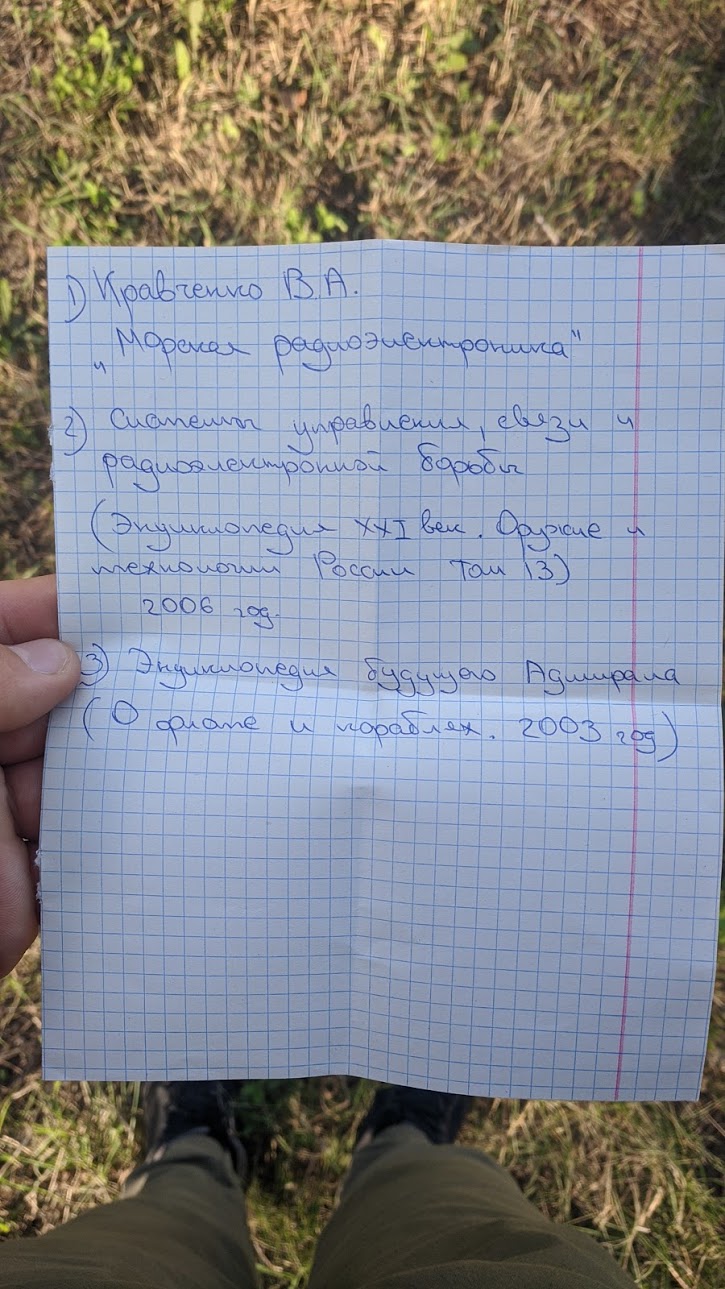 1) Кравченко В.А.
"Морская радиоэлектроника"
2) Системы управления, связи и
радиоэлектронной борьбы
(Энциклопедия XXI век. Оружие и
технологии России Том 13)
2006 год.
3) Энциклопедия будущего Адмирала
(О флоте и кораблях. 2003 год)